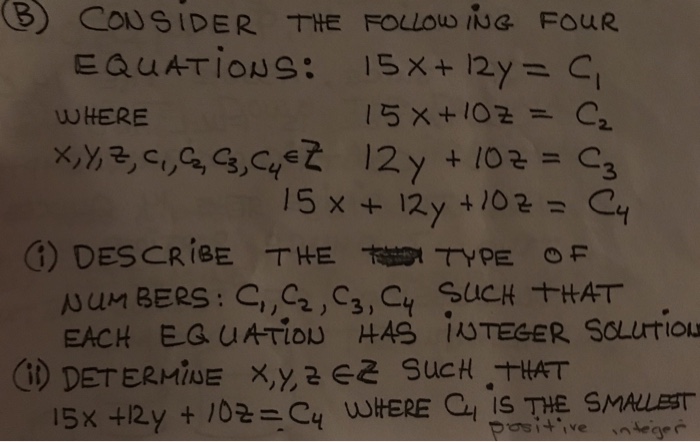 (B) CONSIDER THE FOLLOWING FOUR
EQUATIONS: 15x + 12y = C₁
WHERE 15x + 10z = C₂
X, Y, Z, C₁, C₂, C₃, C₄ ∈ Z 12y + 10z = C₃
15x + 12y + 10z = C₄
(i) DESCRIBE THE TYPE OF
NUMBERS: C₁, C₂, C₃, C₄ SUCH THAT
EACH EQUATION HAS INTEGER SOLUTION
(ii) DETERMINE X, Y, Z ∈ Z SUCH THAT
15x + 12y + 10z = C₄ WHERE C₄ IS THE SMALLEST
positive integer